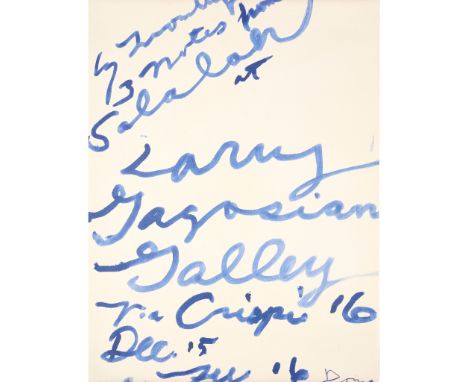 Cy Twombly
/3 Notes from
Salalah
at
Larry
Gagosian
Galley
Via Crispi '16
Dec. 15
'16